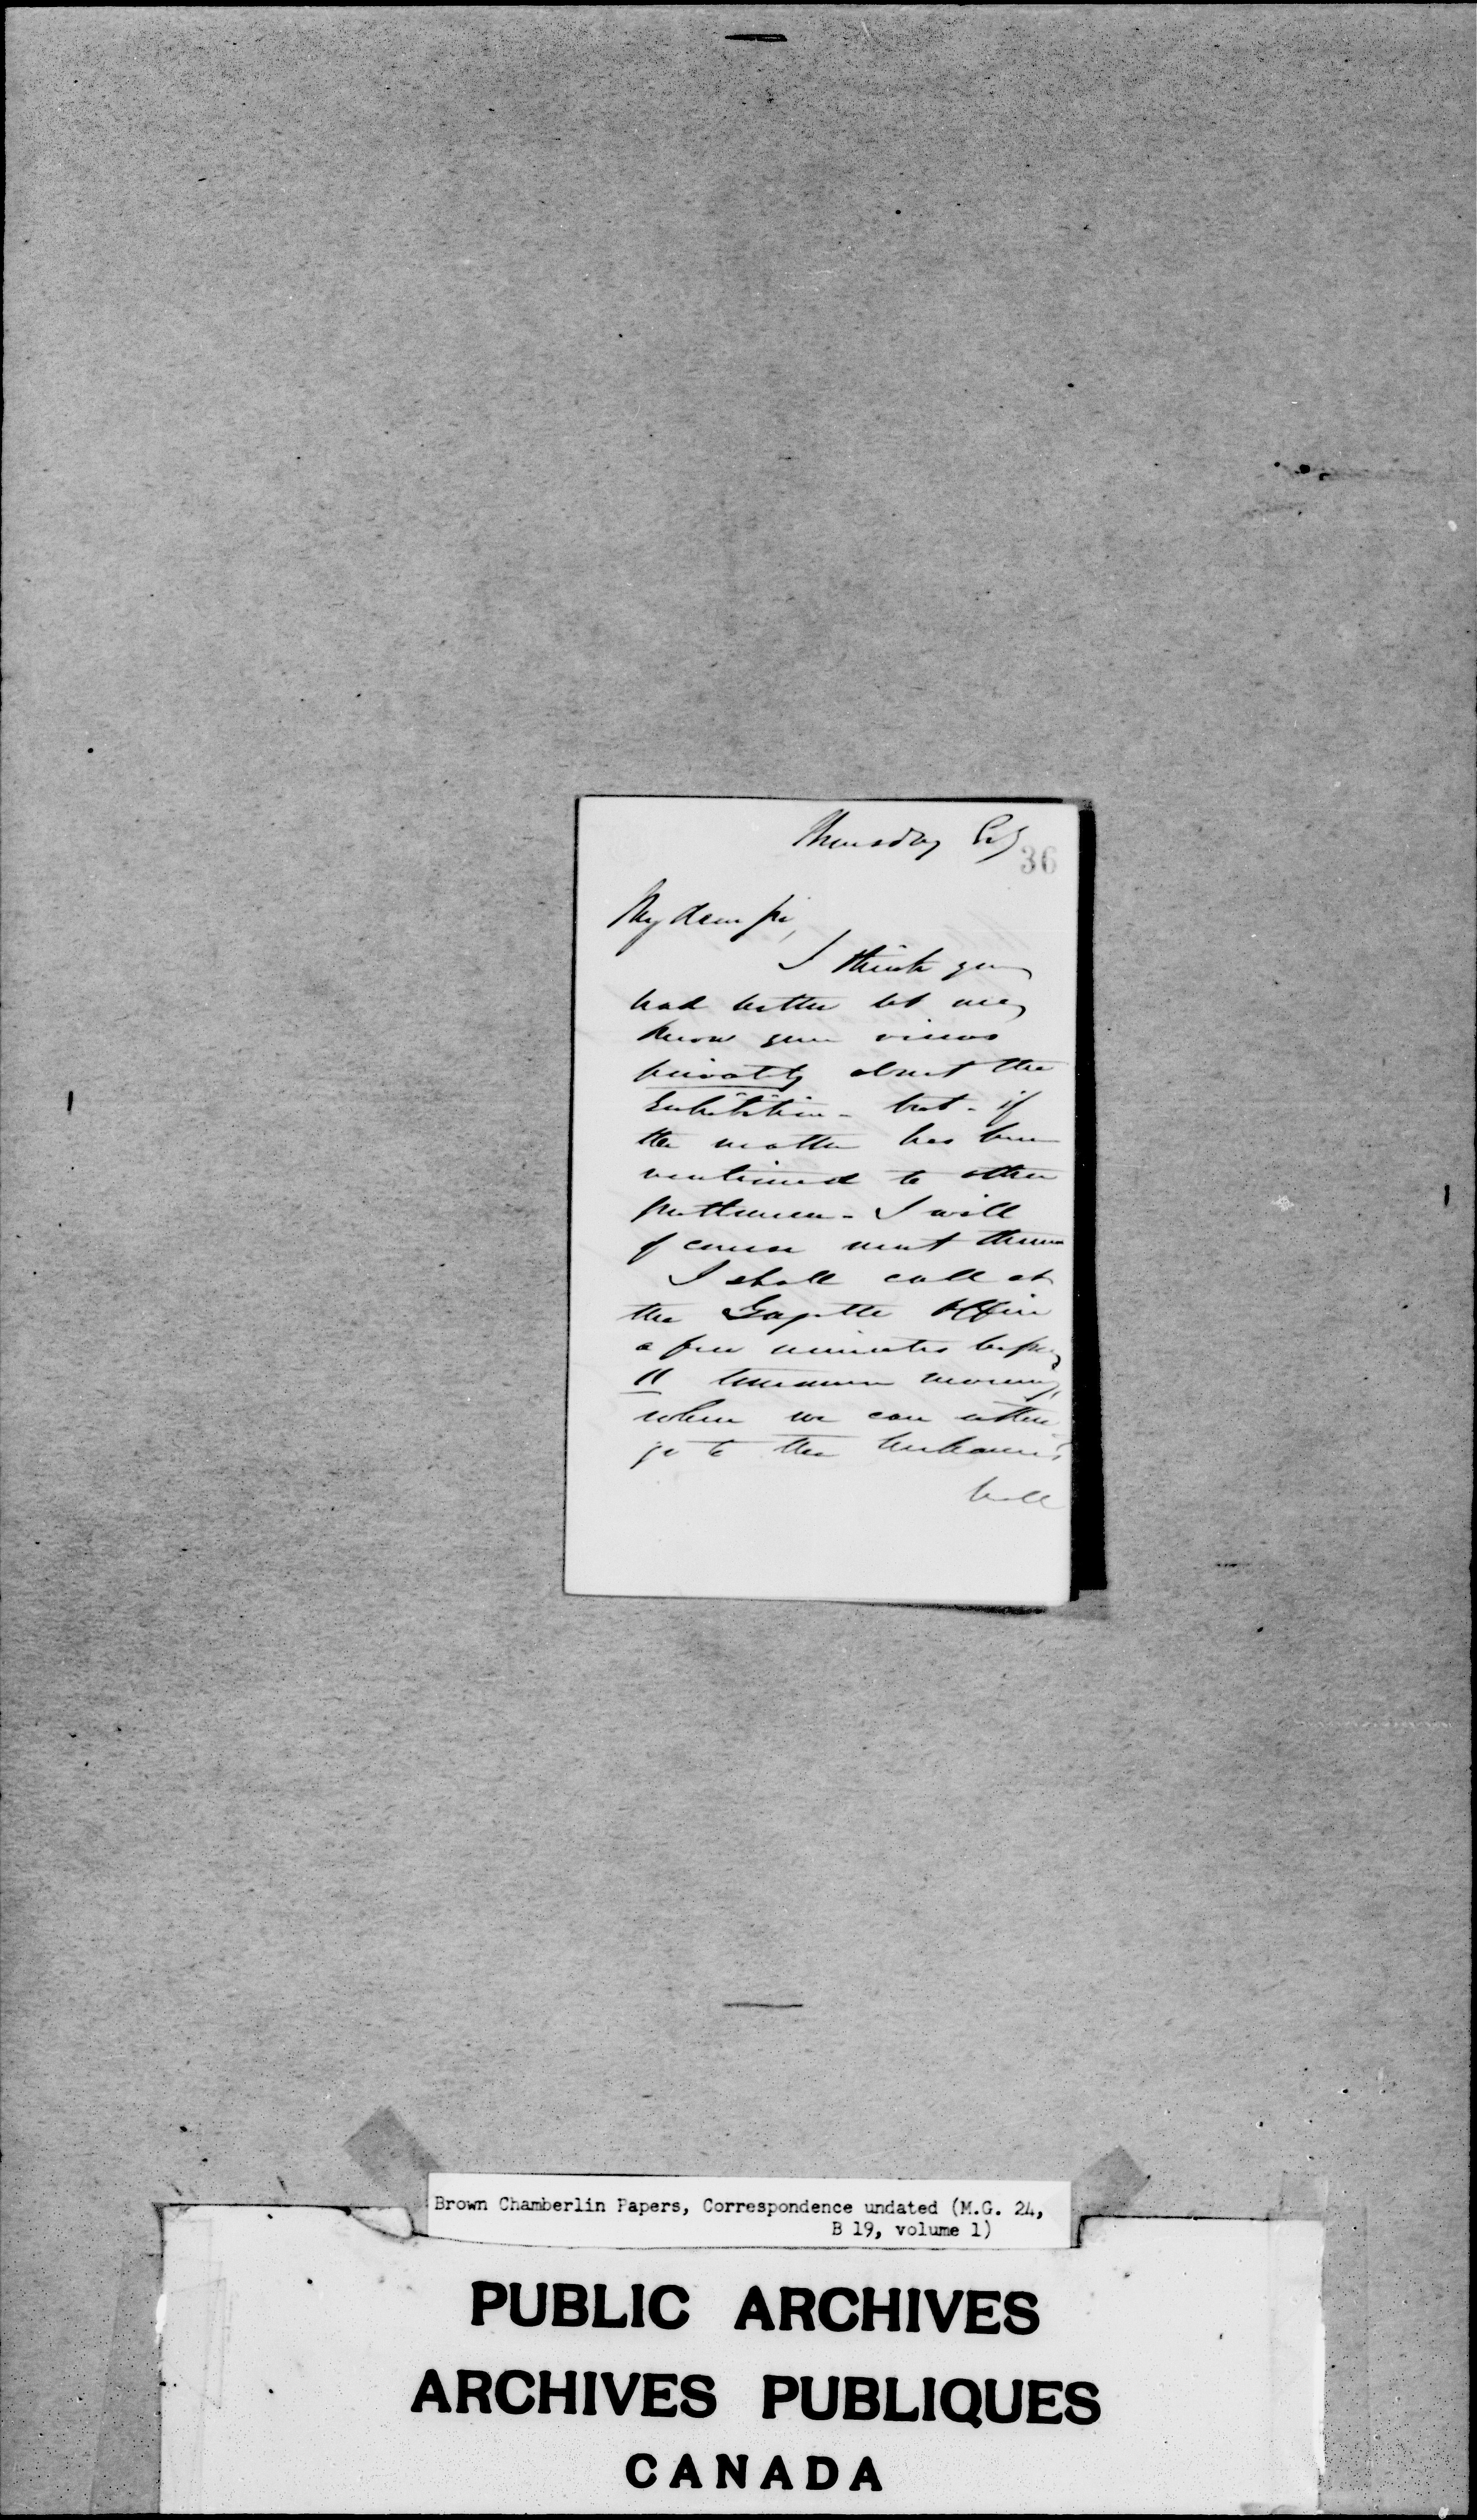 Thursday
36
My dear Sir,
I think you
had better let me
know your views
privately about the
Exhibition - but - if
the matter has been
mentioned to other
gentlemen - I will
of course meet them
I shall call at
the Gazette Office
a few minutes before
11 tomorrow morning,
when we can either
go to the Mechanics
hall
Brown Chamberlin Papers, Correspondence undated (M.G. 24,
B 19, volume 1)
PUBLIC ARCHIVES
ARCHIVES PUBLIQUES
CANADA